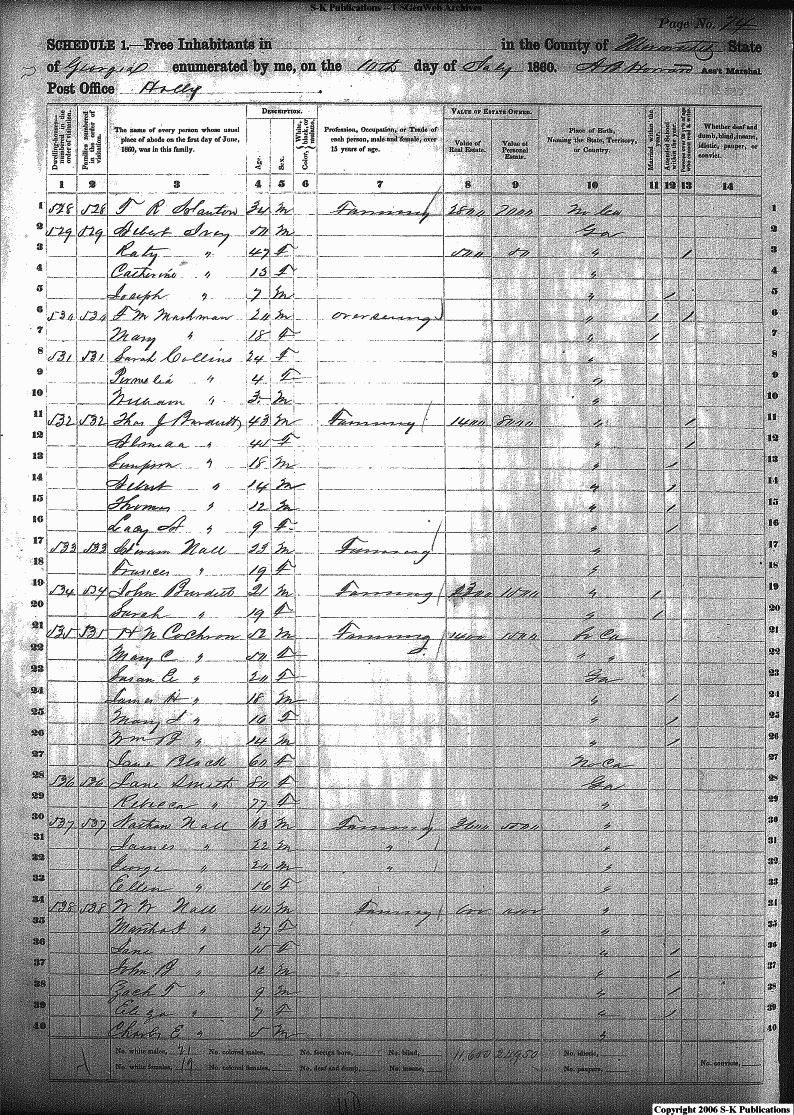 S-K Publications -- USGenWeb Archives
Page No. 74
SCHEDULE 1.—Free Inhabitants in in the County of State
of Georgia enumerated by me, on the day of July 1860. Ass't Marshal
Post Office Holly
Dwelling-houses—numbered in the order of visitation.
Families numbered in the order of visitation.
The name of every person whose usual place of abode on the first day of June, 1860, was in this family.
DESCRIPTION.
Age.
Sex.
Color, White, black, or mulatto.
Profession, Occupation, or Trade of each person, male and female, over 15 years of age.
VALUE OF ESTATE OWNED.
Value of Real Estate.
Value of Personal Estate.
Place of Birth, Naming the State, Territory, or Country.
Married within the year.
Attended School within the year.
Whether deaf and dumb, blind, insane, idiotic, pauper, or convict.
1 2 3 4 5 6 7 8 9 10 11 12 13 14
1 528 528 T R Stanton 34 m Farming 2800 7000 No Ca 1
2 529 529 Ivey 50 m Ga 2
3 Katy " 47 F 500 50 " / 3
4 Catherine " 13 F " 4
5 Joseph " 7 m " / 5
6 530 530 F M Markman 20 m overseeing " / / 6
7 Mary " 18 F " / 7
8 531 531 Sarah Collins 24 F " 8
9 Permelia " 4 F " 9
10 William " 3 m " 10
11 532 532 Thos J Burdett 43 m Farming 1400 8000 " / 11
12 " 45 F " / 12
13 Simpson " 18 m " / 13
14 " 14 m " / 14
15 Thomas " 12 m " / 15
16 Lacy " 9 F " / 16
17 533 533 Hiram Nall 23 m Farming " 17
18 Frances " 19 F " 18
19 534 534 John Burdett 21 m Farming 1500 " / 19
20 Sarah " 19 F " / 20
21 535 535 H N Cochron 52 m Farming 1400 1500 So Ca 21
22 Mary C " 50 F " " 22
23 Susan E " 20 F Ga 23
24 James H " 18 m " / 24
25 Mary " 16 F " / 25
26 Wm " 14 m " / 26
27 Jane Black 60 F No Ca 27
28 536 536 Jane Smith 80 F Ga 28
29 Rebecca " 77 F " 29
30 537 537 Nathan Nall m Farming 3600 5000 " 30
31 James " 22 m " " 31
32 George " 20 m " " 32
33 Ellen " 16 F " 33
34 538 538 W W Nall 40 m Farming 600 " 34
35 Martha " 37 F " 35
36 Jane " 15 F " / 36
37 John B " 12 m " / 37
38 Zach T " 9 m " / 38
39 Eliza " 7 F " / 39
40 Charles E " 5 m " 40
No. white males, 21 No. colored males, No. foreign born, No. blind, 11,600 24950 No. idiotic,
No. white females, 19 No. colored females, No. deaf and dumb, No. insane, No. paupers, No. convicts,
Copyright 2006 S-K Publications